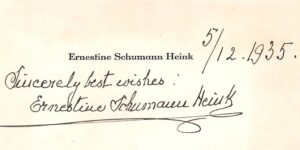 5/12.1935.
Ernestine Schumann Heink
Sincerely best wishes:
Ernestine Schumann Heink